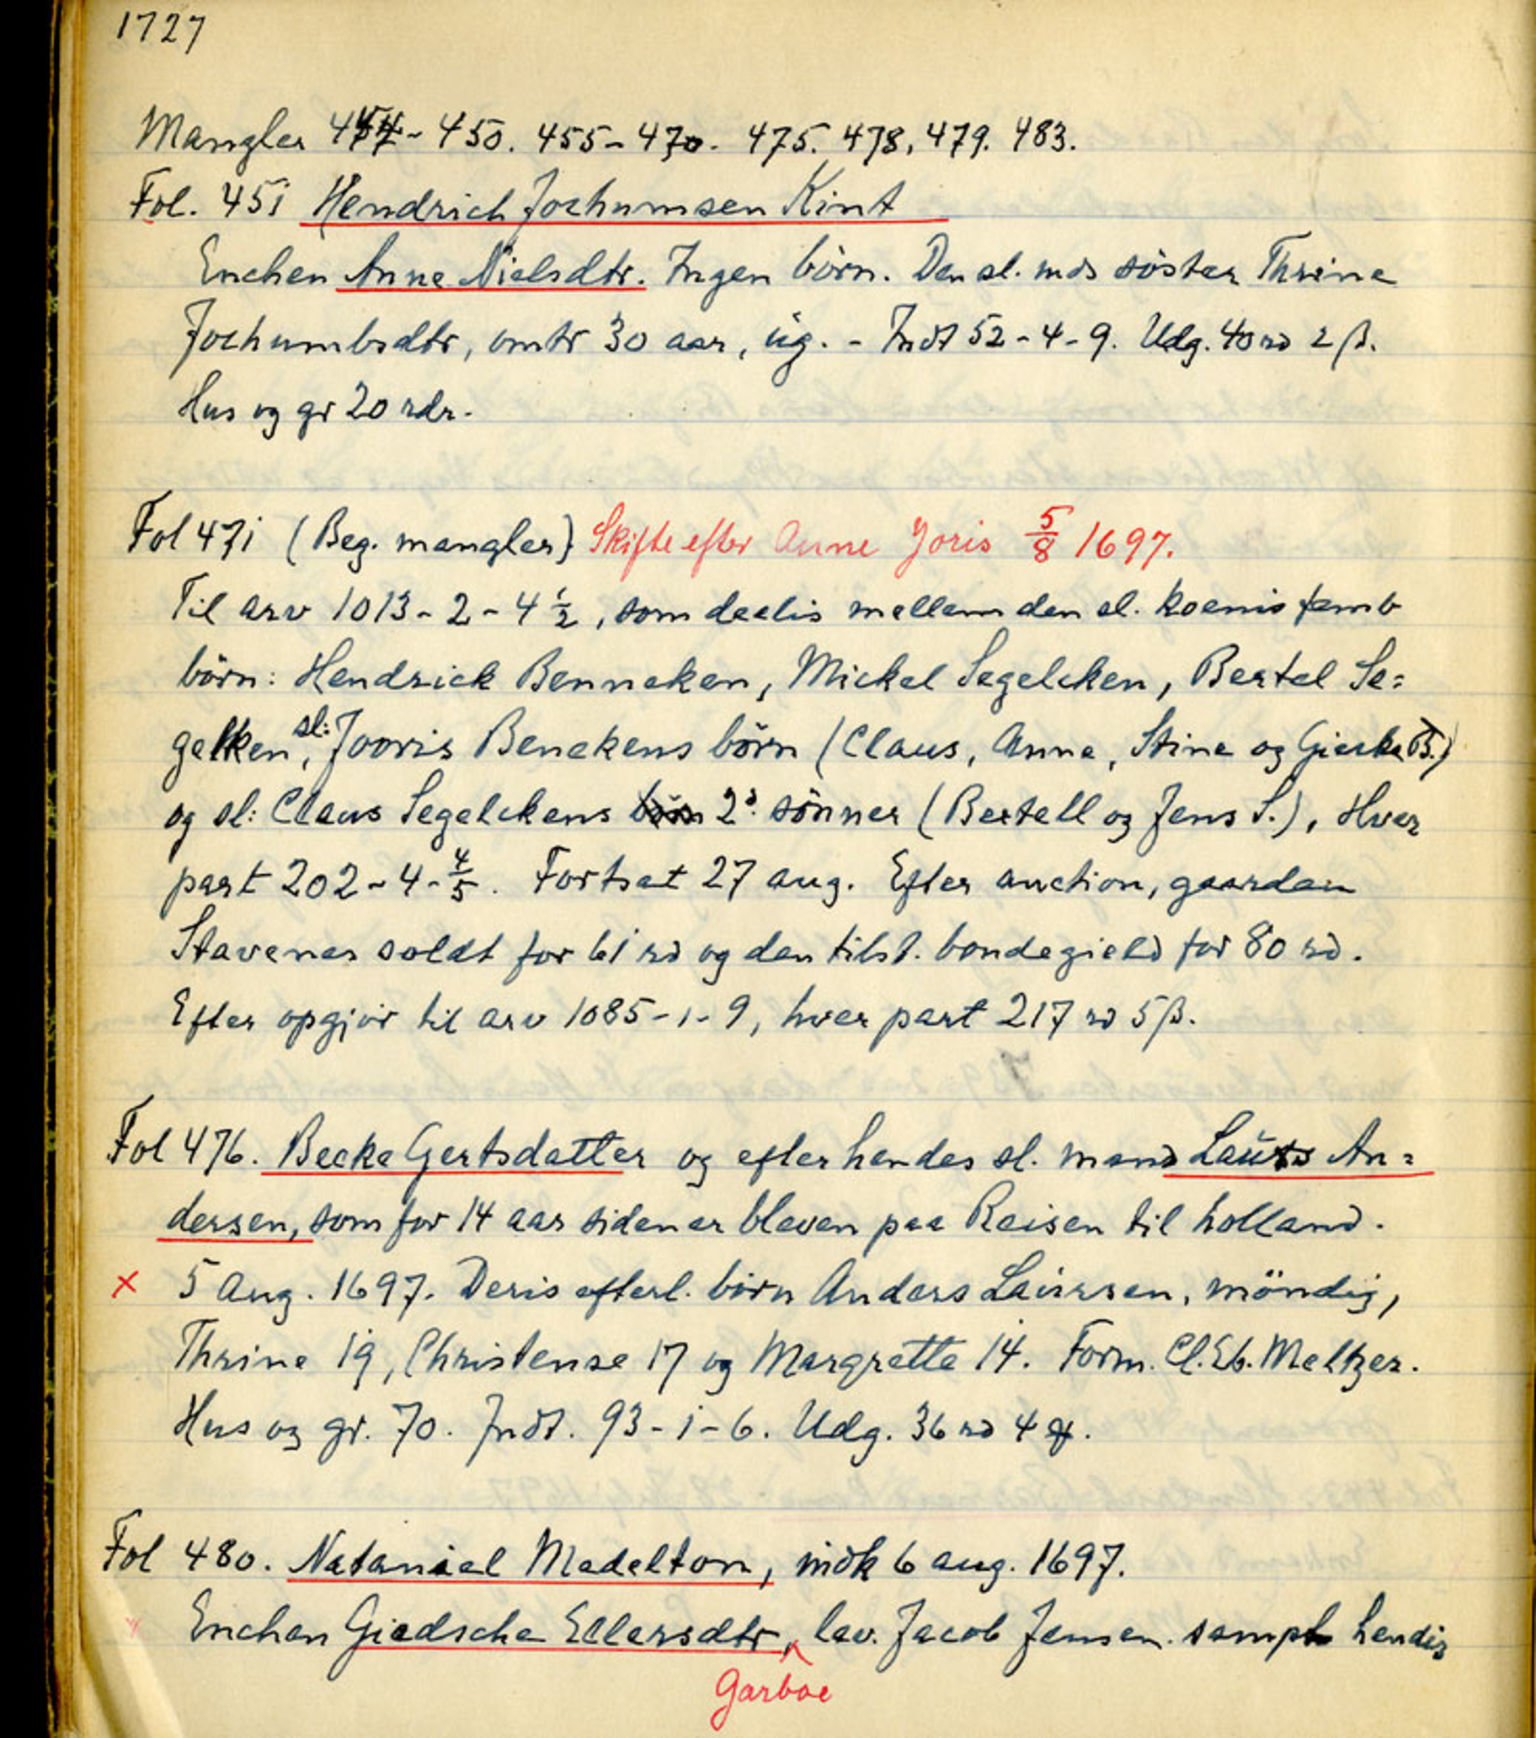 1727
Mangler 4 - 450. 455 - 470. 475. 478, 479. 483.
Fol. 451 Hendrich Jochumsen Kint
Enchen Anne Nielsdtr. Ingen börn. Den sl. mds söster Thrine
Jochumbsdtr, omtr 30 aar, ug. - Indt 52 - 4 - 9. Udg. 40 rd 2 ß.
Hus og gr 20 rdr.
Fol 471 (Beg. mangler) Skifte efter Anne Joris 5/8 1697.
Til arv 1013 - 2 - 4 1/2, som deelis mellem den sl. koenis femb
börn: Hendrick Benneken, Mickel Segelcken, Bertel Se=
gelken, sl: Jooris Benekens börn (Claus, Anne, Stine og Gieske B.)
og sl: Claus Segelckens börn 2de sönner (Bertell og Jens S.), Hver
part 202 - 4 - 4/5. Fortsat 27 aug. Efter auction, gaarden
Stavenes soldt for 61 rd og den tilst. bondegield for 80 rd.
Efter opgjör til arv 1085 - 1 - 9, hver part 217 rd 5 ß.
Fol 476. Becke Gertsdatter og efter hendes sl. mand Laurs An=
dersen, som for 14 aar siden er bleven paa Reisen til holland.
x 5 Aug. 1697. Deris efterl. börn Anders Laursen, möndig,
Thrine 19, Christense 17 og Margrette 14. Form. Cl. Eb. Meltzer.
Hus og gr. 70. Indt. 93 - 1 - 6. Udg. 36 rd 4 ꝗ.
Fol 480. Nataniel Medelton, indk 6 aug. 1697.
Enchen Giedsche Ellersdtr, lav. Jacob Jensen. sampt hendis
Garboe